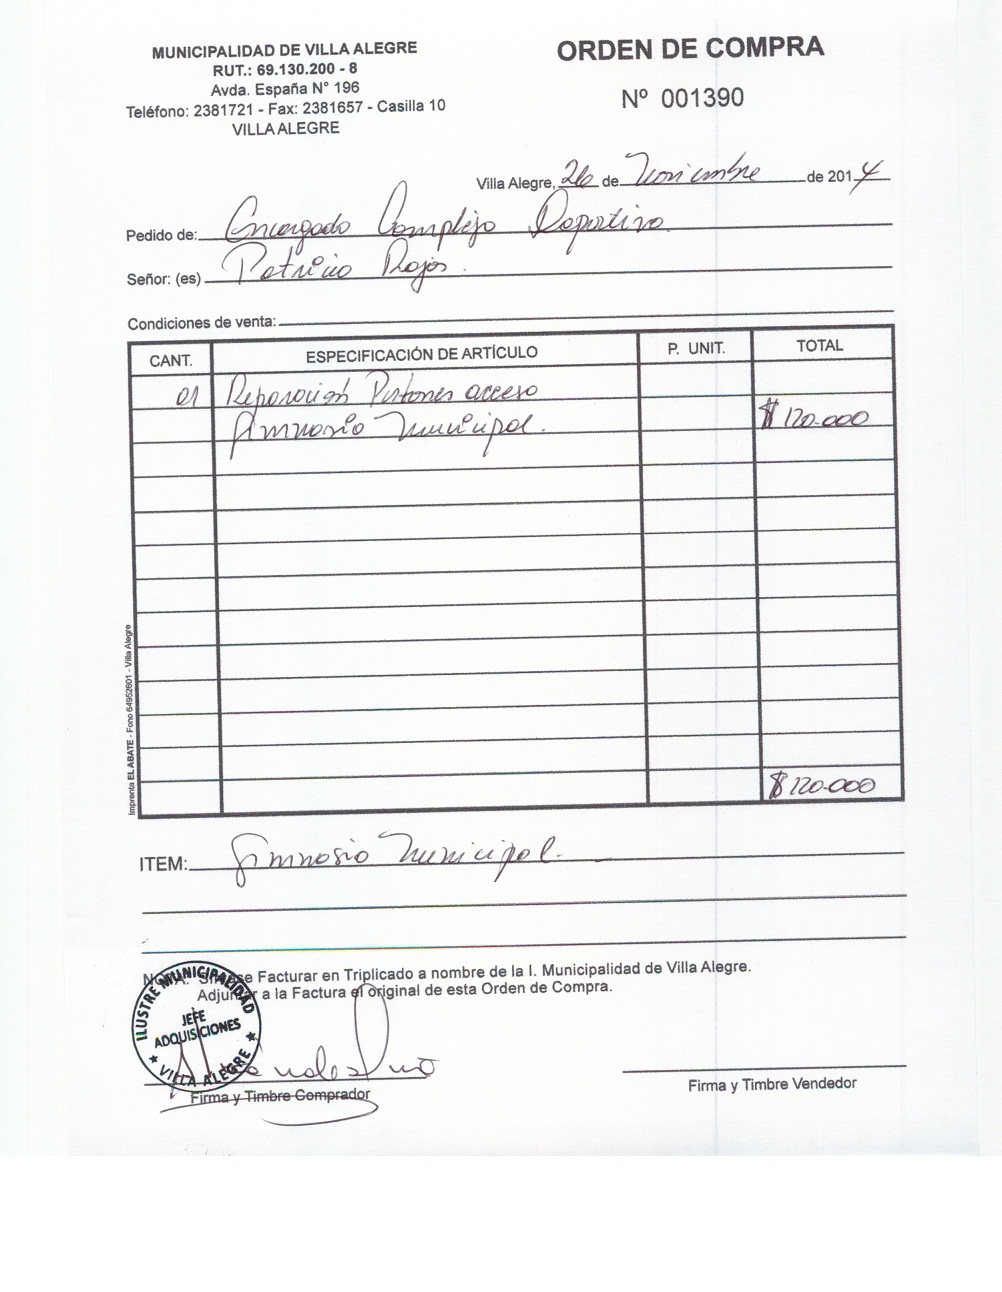 MUNICIPALIDAD DE VILLA ALEGRE
RUT.: 69.130.200 - 8
Avda. España N° 196
Teléfono: 2381721 - Fax: 2381657 - Casilla 10
VILLA ALEGRE
ORDEN DE COMPRA
Nº 001390
Villa Alegre, 26 de Noviembre de 2014
Pedido de: Encargado Complejo Deportivo.
Señor: (es) Patricio Rojas.
Condiciones de venta:
CANT. ESPECIFICACIÓN DE ARTÍCULO P. UNIT. TOTAL
01 Reparación Pistones acceso
Gimnasio Municipal. $ 120.000
$ 120.000
Imprenta EL ABATE - Fono 64952601 - Villa Alegre
ITEM: Gimnasio Municipal.
Facturar en Triplicado a nombre de la I. Municipalidad de Villa Alegre.
a la Factura el original de esta Orden de Compra.
ILUSTRE MUNICIPALIDAD
JEFE
ADQUISICIONES
VILLA ALEGRE
Firma y Timbre Comprador
Firma y Timbre Vendedor